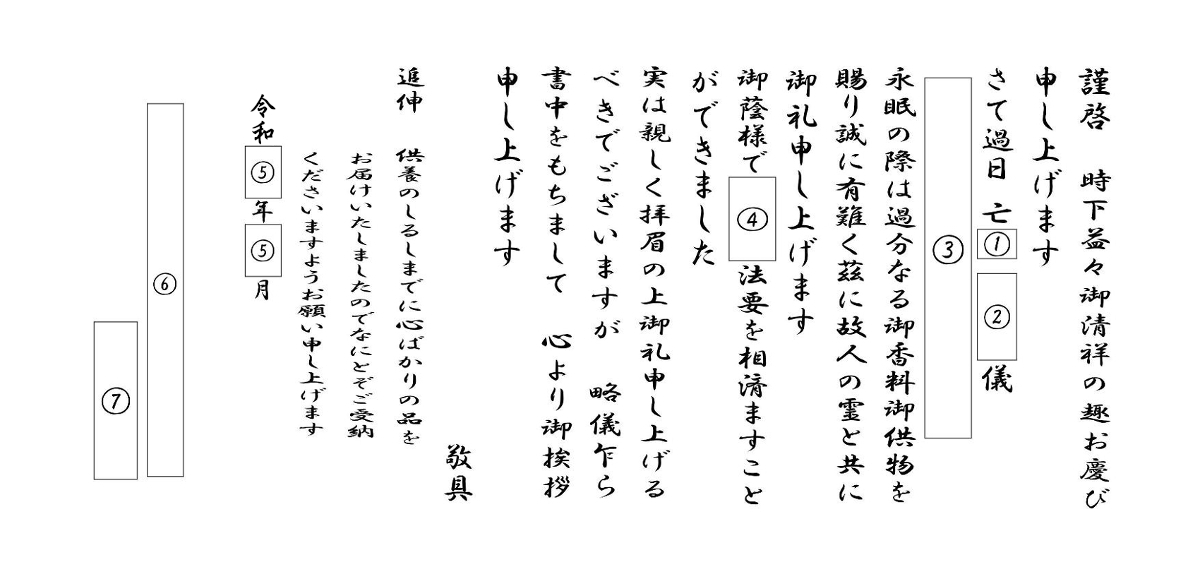 謹啓　時下益々御清祥の趣お慶び
申し上げます
さて過日　亡①　②　儀
③
永眠の際は過分なる御香料御供物を
賜り誠に有難く茲に故人の霊と共に
御礼申し上げます
御蔭様で④法要を相済ますこと
ができました
実は親しく拝眉の上御礼申し上げる
べきでございますが　略儀乍ら
書中をもちまして　心より御挨拶
申し上げます
敬具
追伸　供養のしるしまでに心ばかりの品を
お届けいたしましたのでなにとぞご受納
くださいますようお願い申し上げます
令和⑤年⑤月
⑥
⑦